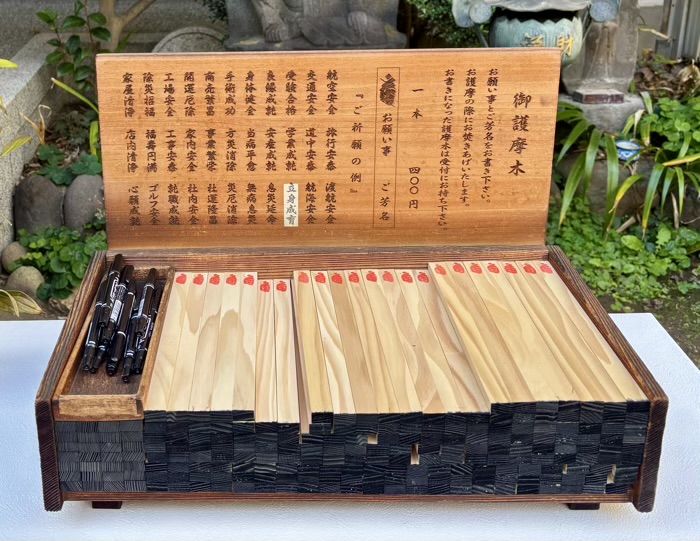 御護摩木
お願い事とご芳名をお書き下さい。
お護摩の際にお焚きあげいたします。
お書きになった護摩木は受付にお持ち下さい。
一本 四〇〇円
お願い事 ご芳名
『ご祈願の例』
航空安全 旅行安全 渡航安全
交通安全 道中安全 航海安全
受験合格 学業成就
良縁成就 安産成就 息災延命
身体健全 当病平癒 無病息災
手術成功 方災消除 災厄消除
商売繁昌 事業繁栄 社運隆昌
開運厄除 家内安全 社内安全
工場安全 工事安全 就職成就
除災招福 福寿円満 ゴルフ安全
家屋清浄 店内清浄 心願成就
財